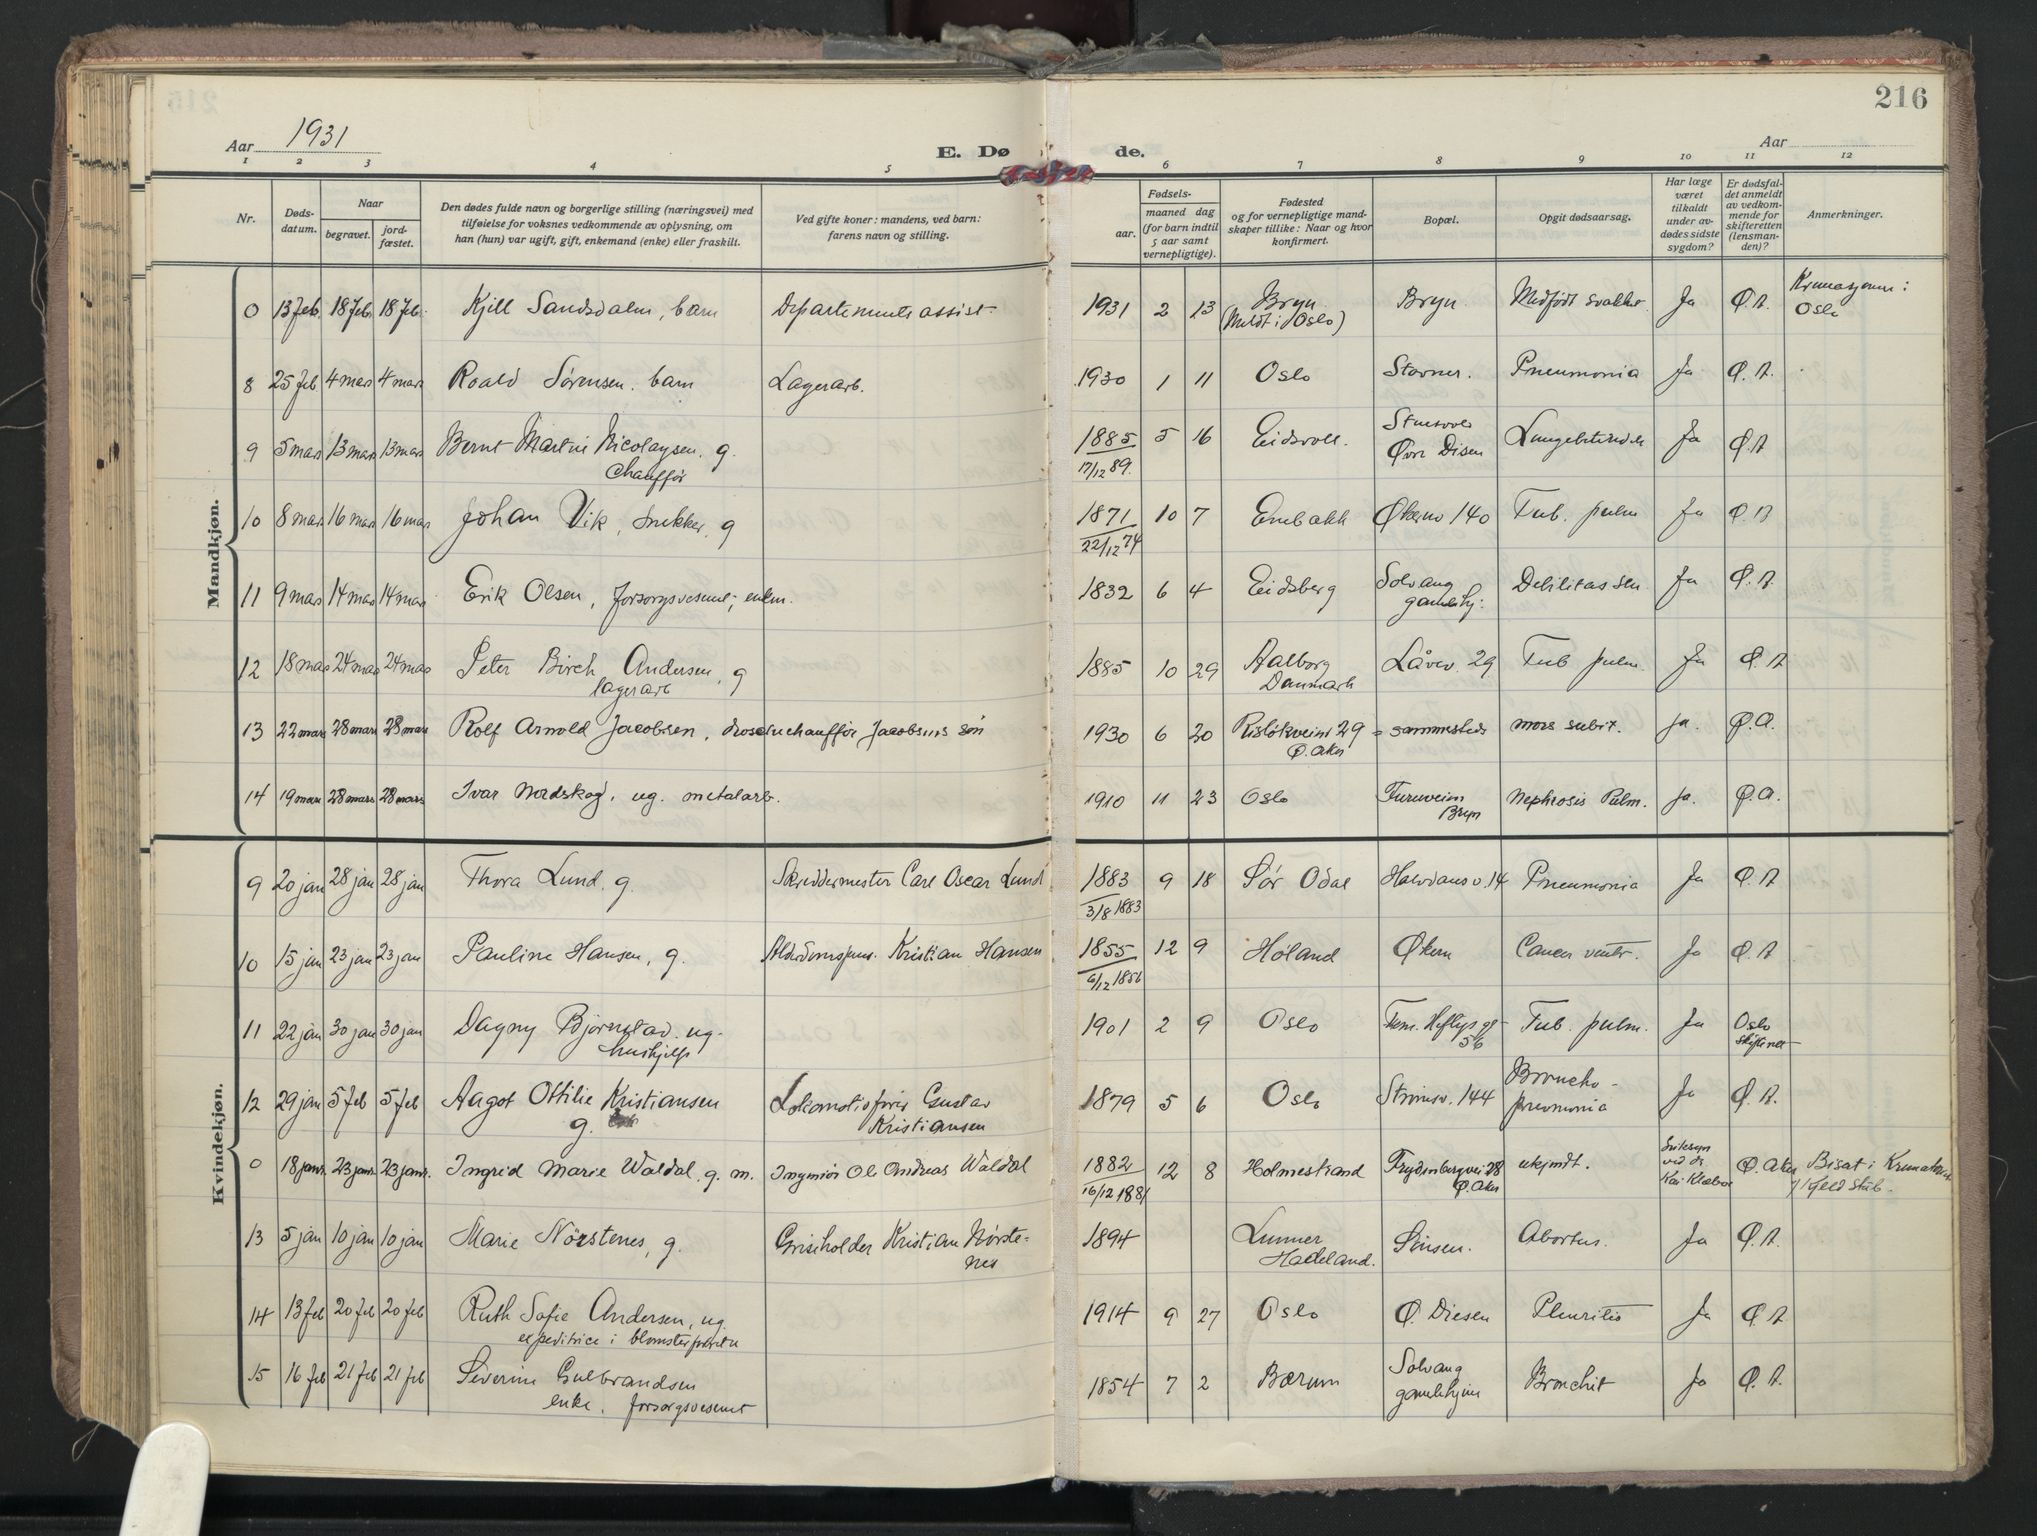 216
Aar 1931
E. Dø de.
Aar
1 2 3 4 5 6 7 8 9 10 11 12
Nr.
Døds-
datum.
Naar
begravet.
jord-
fæstet.
Den dødes fulde navn og borgerlige stilling (næringsvei) med
tilføielse for voksnes vedkommende av oplysning, om
han (hun) var ugift, gift, enkemand (enke) eller fraskilt.
Ved gifte koner: mandens, ved barn:
farens navn og stilling.
Fødsels-
aar.
maaned dag
(for barn indtil
5 aar samt
vernepligtige).
Fødested
og for vernepligtige mand-
skaper tillike: Naar og hvor
konfirmert.
Bopæl.
Opgit dødsaarsag.
Har læge
været
tilkaldt
under av-
dødes sidste
sygdom?
Er dødsfal-
det anmeldt
av vedkom-
mende for
skifteretten
(lensman-
den)?
Anmerkninger.
Mandkjøn.
0 13 feb. 18 feb. 18 feb. Kjell Sandsdalen, barn Departements assist. 1931 2 13 Bryn (Meldt i Oslo) Bryn. Medfødt svakhet Ja Ø. A. Kremasjonen: Oslo
8 25 feb 4 mars 4 mars Roald Sørensen. barn Lagerarb. 1930 1 11 Oslo Stovner. Pneumonia Ja Ø. A.
9 5 mars 13 mars 13 mars Bernt Martin Nicolaysen. g. Chauffør 1885 17/12 89. 5 16 Eidsvoll. Øvre Disen Ja Ø. A
10 8 mars 16 mars 16 mars Johan Vik, snekker, g 1871 22/12 74 10 7 Enebakk Økernv 140 Tub. pulm Ja Ø. A
11 9 mars 14 mars 14 mars Erik Olsen, forsorgsvesenet; enkem. 1832 6 4 Eidsberg Solvang gamlehj: Debilitas sen. Ja Ø. A.
12 18 mars 24 mars 24 mars Peter Birch Andersen, g lagerarb 1885 10 29 Aalborg Danmark Låvev. 29 Tub pulm. Ja Ø. A
13 22 mars 28 mars 28 mars Rolf Arnold Jacobsen, drosjechauffør Jacobsens søn 1930 6 20 Risløkveien 29 Ø. Aker = sammesteds mors subit. ja. Ø. A.
14 19 mars 28 mars 28 mars Ivar Nordskog, ug. metalarb. 1910 11 23 Oslo Furuveien Bryn Nephrosis Pulm. ja. Ø. A.
Kvindekjøn.
9 20 jan 28 jan 28 jan Thora Lund. g. Skreddermester Carl Oscar Lund 1883 3/8 1883 9 18 Sør Odal Halvdans v. 14 Pneumonia Ja Ø. A
10 15 jan 23 jan 23 jan Pauline Hansen, g. Alderdomspens. Kristian Hansen 1855 6/12 1856 12 9 Høland Økern Cancer ventr. Ja Ø. A.
11 22 jan 30 jan 30 jan Dagny Bjørnstad. ug. hushjelp 1901 2 9 Oslo Tom. Heftys gt 56 Tub. pulm. Ja Oslo skifterett
12 29 jan 5 feb 5 feb Aagot Ottilie Kristiansen g. Lokomotivfører Gustav Kristiansen 1879 5 6 Oslo Strømsv. 144 Broncho-pneumonia Ja Ø. A.
0 18 janr. 23 janr. 23 janr. Ingrid Marie Waldal, g. m. Ingeniør Ole Andreas Waldal 1882 16/12 1881 12 8 Holmestrand Frydenbergvei 28 Ø. Aker ukjendt. Ø. Aker Bisat i
13 5 jan 10 jan 10 jan Marie Nørstenes, g. Griseholder Kristian Nørstenes 1894 Lunner Hadeland. Sinsen. Abortus. Ja Ø. A.
14 13 feb 20 feb 20 feb Ruth Sofie Andersen, ug. expeditrice i 1914 9 27 Oslo Ø. Diesen Pleuritis Ja Ø. A
15 16 feb 21 feb 21 feb Severine Gulbrandsen enke. forsorgsvesenet 1854 7 2 Bærum Solvang gamlehjem Bronchit Ja Ø. A.